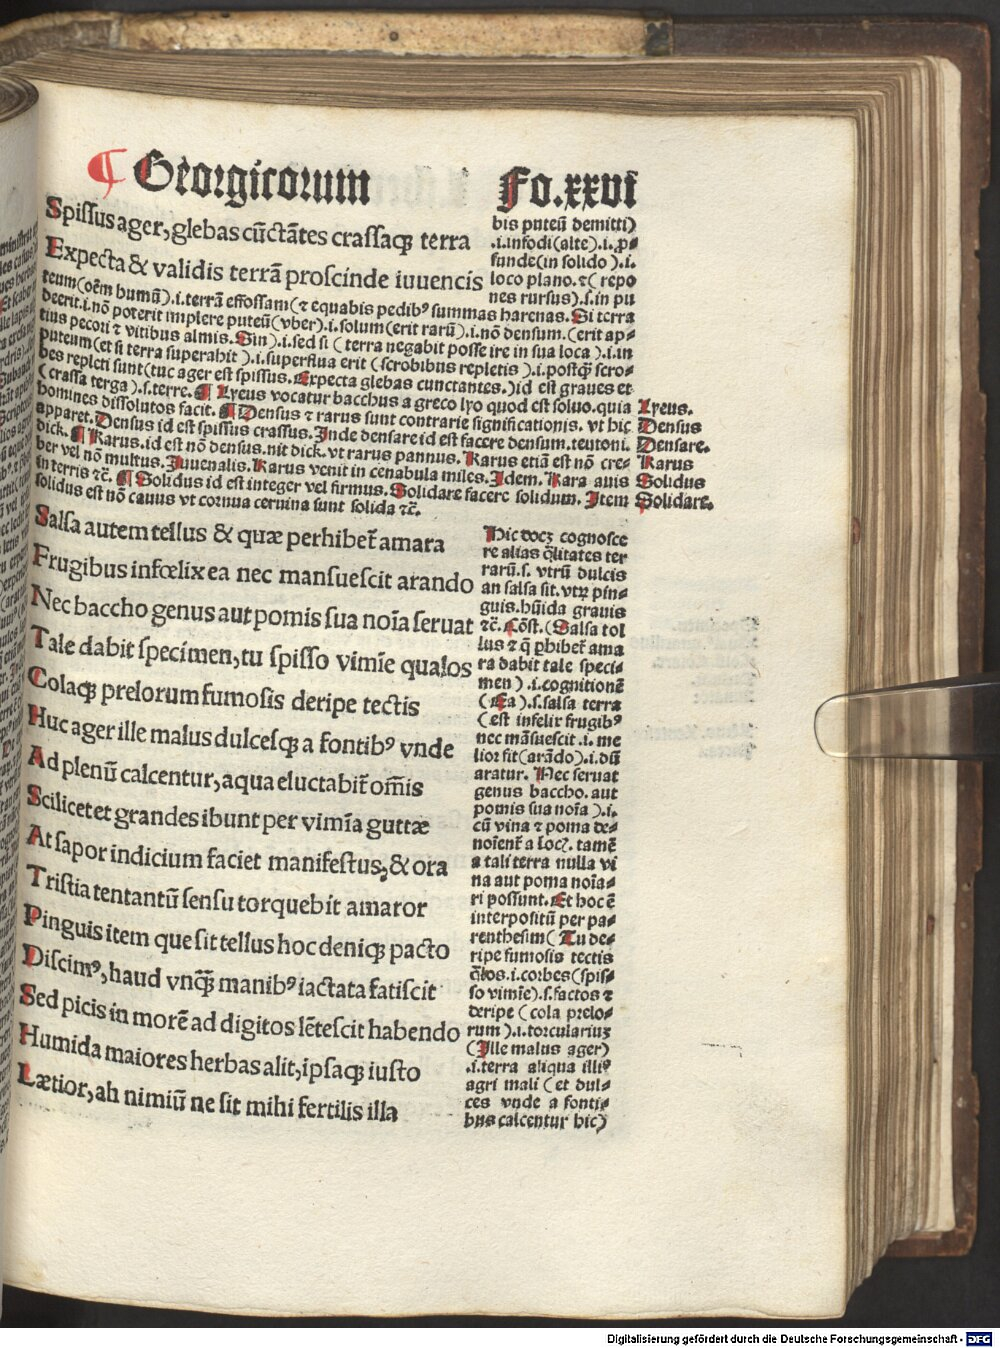 ¶ Georgicorum Fo.xxvi
Spissus ager, glebas cūctātes crassaqꝫ terra
Expecta & validis terrā proscinde iuuencis
bis puteū demitti)
.i.infodi(alte).i.ꝓ⸗
funde(in solido ).i.
loco plano.⁊( repo
nes rursus).s.in pu
teum(oēm humū).i.terrā effossam(⁊ equabis pedibꝰ summas harenas. Si terra
deerit.i.nō poterit implere puteū(vber).i.solum(erit rarū).i.nō densum.(erit ap⸗
tius pecori ⁊ vitibus almis. Sin).i.sed si ( terra negabit posse ire in sua loca ).i.in
puteum(et si terra superabit ).i.superflua erit (scrobibus repletis ).i.postꝙ̄ scro⸗
bes repleti sunt(tuc ager est spissus. Expecta glebas cunctantes.)id est graues et
( crassa terga ).s.terre. ¶ Lyeus vocatur bacchus a greco lyo quod est soluo.quia Lyeus.
homines dissolutos facit. ¶ Densus ⁊ rarus sunt contrarie significationis. vt hic Densus
apparet. Densus id est spissus crassus. Inde densare id est facere densum.teutoni. Densare.
dick. ¶ Rarus.id est nō densus.nit dick. vt rarus pannus. Rarus etiā est nō cre⸗ Rarus
ber vel nō multus. Iuuenalis. Rarus venit in cenabula miles. Idem. Rara auis Solidus
in terris ⁊c̄. ¶ Solidus id est integer vel firmus. Solidare facere solidum. Item Solidare.
solidus est nō cauus vt cornua ceruina sunt solida ⁊c̄.
Salsa autem tellus & quæ perhibet̄ amara
Frugibus infœlix ea nec mansuescit arando
Nec baccho genus aut pomis sua noīa seruat
Tale dabit specimen, tu spisso vimīe qualos
Colaqꝫ prelorum fumosis deripe tectis
Huc ager ille malus dulcesqꝫ a fontibꝰ vnde
Ad plenū calcentur, aqua eluctabit̄ om̄is
Scilicet et grandes ibunt per vimīa guttæ
At sapor indicium faciet manifestus, & ora
Tristia tentantū sensu torquebit amaror
Pinguis item que sit tellus hoc deniqꝫ pacto
Discimꝰ, haud vnqꝙ̄ manibꝰ iactata fatiscit
Sed picis in morē ad digitos lētescit habendo
Humida maiores herbas alit, ipsaqꝫ iusto
Lætior, ah nimiū ne sit mihi fertilis illa
Hic docꝫ cognosce
re alias q̄litates ter
rarū.s. vtrū dulcis
an salsa sit. vtꝝ pin⸗
guis.hūida grauis
⁊c̄. Cōst. (Salsa tol
lus ⁊ q̄ ꝑhibet̄ ama
ra dabit tale speci⸗
men ) .i.cognitionē
( Ea ).s.salsa terra
( est infelix frugibꝰ
nec māsuescit .i. me
lior fit(arādo).i.dū
aratur. Nec seruat
genus baccho. aut
pomis sua noīa ).i.
cū vina ⁊ poma de⸗
noīent̄ a locꝭ. tamē
a tali terra nulla vi
na aut poma noīa⸗
ri possunt. Et hoc ē
interpositū per pa⸗
renthesim( Tu de⸗
ripe fumosis tectis
q̄los.i.corbes(spis⸗
so vimīe).s.factos ⁊
deripe ( cola prelo⸗
rum ).i.torculariuꝫ
(Ille malus ager)
.i.terra aliqua illiꝰ
agri mali ( et dul⸗
ces vnde a fonti⸗
bus calcentur hic)
Digitalisierung gefördert durch die Deutsche Forschungsgemeinschaft - DFG